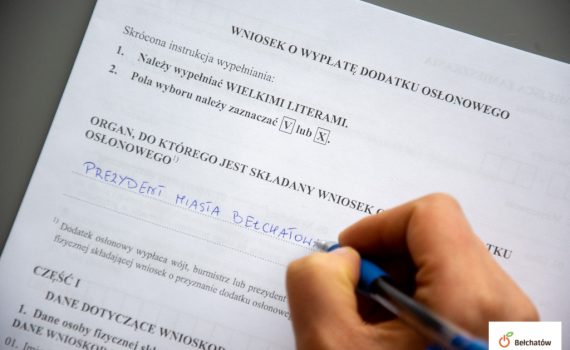 WNIOSEK O WYPŁATĘ DODATKU OSŁONOWEGO
Skrócona instrukcja wypełniania:
1. Należy wypełniać WIELKIMI LITERAMI.
2. Pola wyboru należy zaznaczać V lub X.
ORGAN, DO KTÓREGO JEST SKŁADANY WNIOSEK O DODATKU
OSŁONOWEGO 1)
PREZYDENT MIASTA BEŁCHATOW
1) Dodatek osłonowy wypłaca wójt, burmistrz lub prezydent
fizycznej składającej wniosek o przyznanie dodatku osłonowego
CZĘŚĆ I
DANE DOTYCZĄCE WNIOSKOD
1. Dane osoby fizycznej skła
DANE WNIOSKOD
01. Imię
Bełchatów